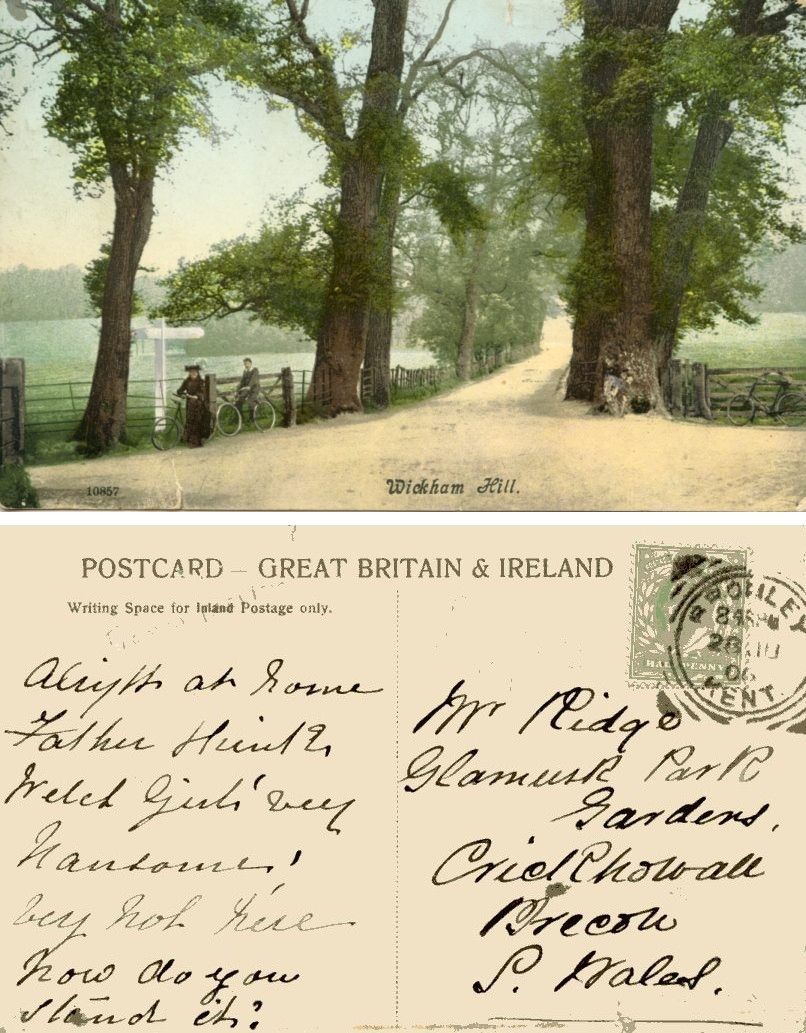 10857
Wickham Hill.
POSTCARD – GREAT BRITAIN & IRELAND
Writing Space for Inland Postage only.
HALFPENNY
BROMLEY
8
28 JU
06
KENT
Alright at home
Father thinks
Welch Girls' very
Hansome!
very hot here
how do you
stand it?
Mr Ridge
Glamusk Park
Gardens,
CrickChowall
Brecon
S. Wales.